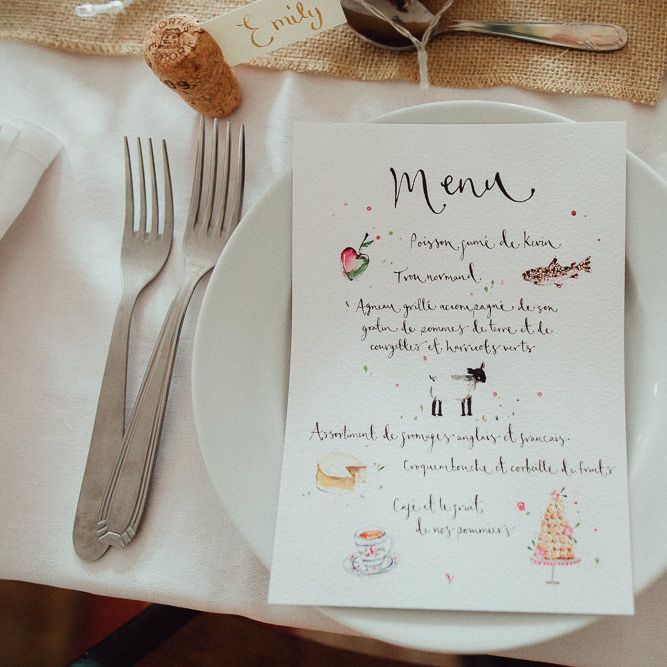 Emily
Menu
Poisson fumé de Kevin
Trou normand
Agneau grillé accompagné de son
gratin de pommes de terre et de
courgettes et harricots verts
Assortiment de fromages anglais et francais
Croquembouche et corbeille de fruits
Café et le fruit
de nos pommiers